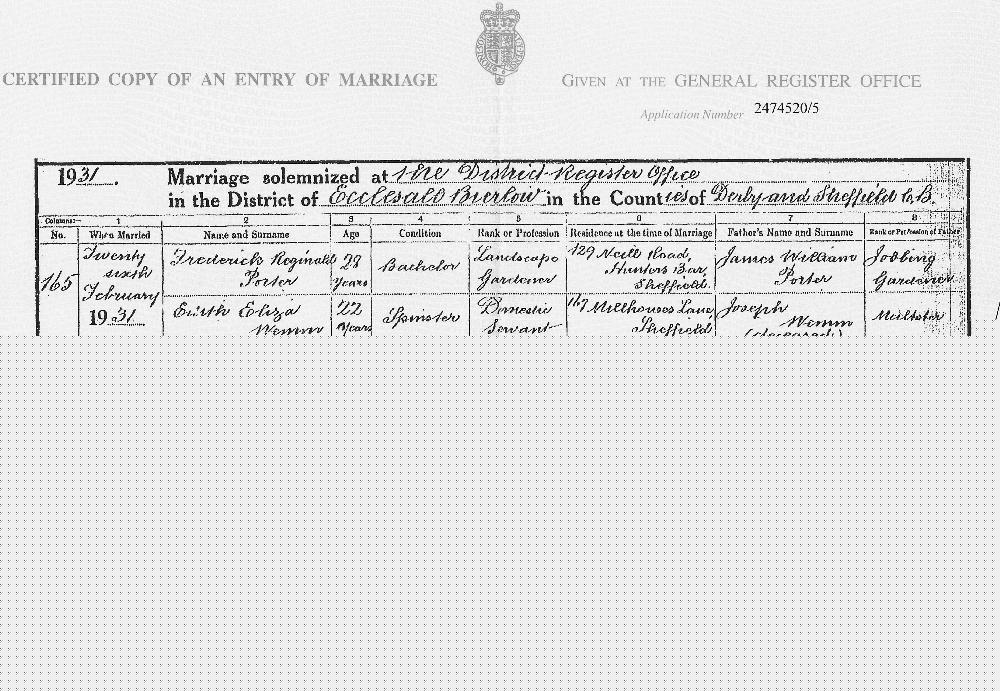 CERTIFIED COPY OF AN ENTRY OF MARRIAGE
GIVEN AT THE GENERAL REGISTER OFFICE
Application Number 2474520/5
1931. Marriage solemnized at The District Register Office
in the District of Ecclesall Bierlow in the Counties of Derby and Sheffield C.B.
Columns:— 1 2 3 4 5 6 7 8
No. When Married Name and Surname Age Condition Rank or Profession Residence at the time of Marriage Father's Name and Surname Rank or Profession of Father
165 Twenty sixth February 1931. Frederick Reginald Porter 28 Years Bachelor Landscape Gardener 129 Neill Road, Hunters Bar, Sheffield. James William Porter Jobbing Gardener
Eliza Wemm 22 Years Spinster Domestic Servant 167 Millhouses Lane, Sheffield Joseph Wemm (deceased)